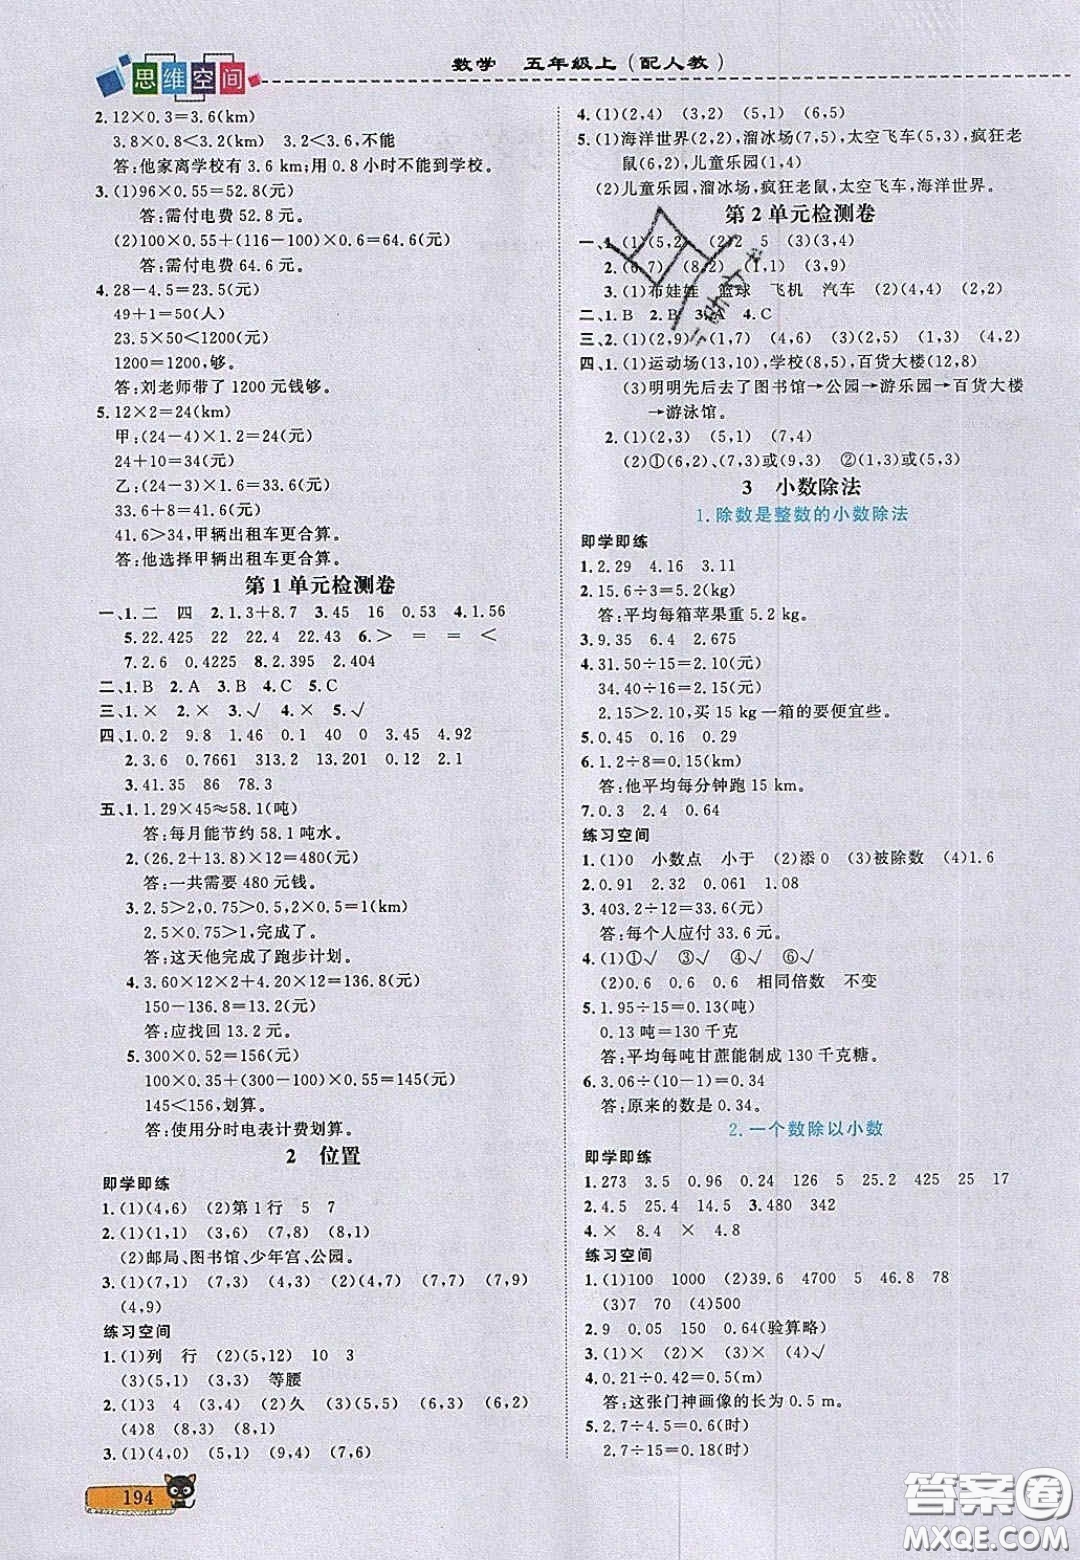 思维空间
数学 五年级上(配人教)
2.12×0.3=3.6(km)
3.8×0.8<3.2(km) 3.2<3.6,不能
答:他家离学校有 3.6 km;用 0.8 小时不能到学校。
3.(1)96×0.55=52.8(元)
答:需付电费 52.8 元。
(2)100×0.55+(116-100)×0.6=64.6(元)
答:需付电费 64.6 元。
4.28-4.5=23.5(元)
49+1=50(人)
23.5×50<1200(元)
1200=1200,够。
答:刘老师带了 1200 元钱够。
5.12×2=24(km)
甲:(24-4)×1.2=24(元)
24+10=34(元)
乙:(24-3)×1.6=33.6(元)
33.6+8=41.6(元)
41.6>34,甲辆出租车更合算。
答:他选择甲辆出租车更合算。
第 1 单元检测卷
一、1.二 四 2.1.3+8.7 3.45 16 0.53 4.1.56
5.22.425 22 22.4 22.43 6.> = = <
7.2.6 0.4225 8.2.395 2.404
二、1.B 2.A 3.B 4.C 5.C
三、1.× 2.× 3.√ 4.× 5.√
四、1.0.2 9.8 1.46 0.1 40 0 3.45 4.92
2.3.6 0.7661 313.2 13.201 0.12 2.1
3.41.35 86 78.3
五、1.1.29×45≈58.1(吨)
答:每月能节约 58.1 吨水。
2.(26.2+13.8)×12=480(元)
答:一共需要 480 元钱。
3.2.5>2,0.75>0.5,2×0.5=1(km)
2.5×0.75>1,完成了。
答:这天他完成了跑步计划。
4.3.60×12×2+4.20×12=136.8(元)
150-136.8=13.2(元)
答:应找回 13.2 元。
5.300×0.52=156(元)
100×0.35+(300-100)×0.55=145(元)
145<156,划算。
答:使用分时电表计费划算。
2 位置
即学即练
1.(1)(4,6) (2)第 1 行 5 7
2.(1)(3,1) (3,6) (7,8) (8,1)
(2)邮局、图书馆、少年宫、公园。
3.(1)(7,1) (7,3) (4,3) (2)(7,7) (7,9)
(4,9)
练习空间
1.(1)列 行 (2)(5,12) 10 3
(3)(5,1) (3,3) 等腰
2.(1)3 4 (3,4) (2)久 (3)(5,5) (6,3) (7,7)
(4)8 (8,3) (8,9)
3.(1)(4,0) (5,2) (9,4) (7,6)
194
4.(1)(2,4) (3,2) (5,1) (6,5)
5.(1)海洋世界(2,2),溜冰场(7,5),太空飞车(5,3),疯狂老
鼠(6,2),儿童乐园(1,1)
(2)儿童乐园,溜冰场,疯狂老鼠,太空飞车,海洋世界。
第 2 单元检测卷
一、1.(1)(5,2) (2)2 5 (3)(3,4)
2.(6,7) (8,2) (1,1) (3,9)
3.(1)布娃娃 篮球 飞机 汽车 (2)(4,2) (2,2)
二、1.B 2.B 3.A 4.C
三、2.(1)(2,9) (1,7) (4,6) (3)(5,2) (1,3) (4,4)
四、1.(1)运动场(13,10),学校(8,5),百货大楼(12,8)
(3)明明先后去了图书馆→公园→游乐园→百货大楼
→游泳馆。
2.(1)(2,3) (5,1) (7,4)
(2)①(6,2)、(7,3)或(9,3) ②(1,3)或(5,3)
3 小数除法
1.除数是整数的小数除法
即学即练
1.2.29 4.16 3.11
2.15.6÷3=5.2(kg)
答:平均每箱苹果重 5.2 kg。
3.9.35 6.4 2.675
4.31.50÷15=2.10(元)
34.40÷16=2.15(元)
2.15>2.10,买 15 kg 一箱的要便宜些。
5.0.45 0.16 0.29
6.1.2÷8=0.15(km)
答:他平均每分钟跑 15 km。
7.0.3 2.4 0.64
练习空间
1.(1)0 小数点 小于 (2)添 0 (3)被除数 (4)1.6
2.0.91 2.32 0.061 1.08
3.403.2÷12=33.6(元)
答:每个人应付 33.6 元。
4.(1)①√ ③√ ④√ ⑥√
(2)0.6 0.6 0.6 相同倍数 不变
5.1.95÷15=0.13(吨)
0.13 吨=130 千克
答:平均每吨甘蔗能制成 130 千克糖。
6.3.06÷(10-1)=0.34
答:原来的数是 0.34。
2.一个数除以小数
即学即练
1.273 3.5 0.96 0.24 126 5 25.2 425 25 17
2.4.5 25.4 14.5 3.480 342
4.× 8.4 × 4.8
练习空间
1.(1)100 1000 (2)39.6 4700 5 46.8 78
(3)7 70 (4)500
2.9 0.05 150 0.64(验算略)
3.(1)× (2)× (3)× (4)√
4.0.21÷0.42=0.5(m)
答:这张门神画像的长为 0.5 m。
5.2.7÷4.5=0.6(时)
2.7÷15=0.18(时)
答案圈
MXQE.COM